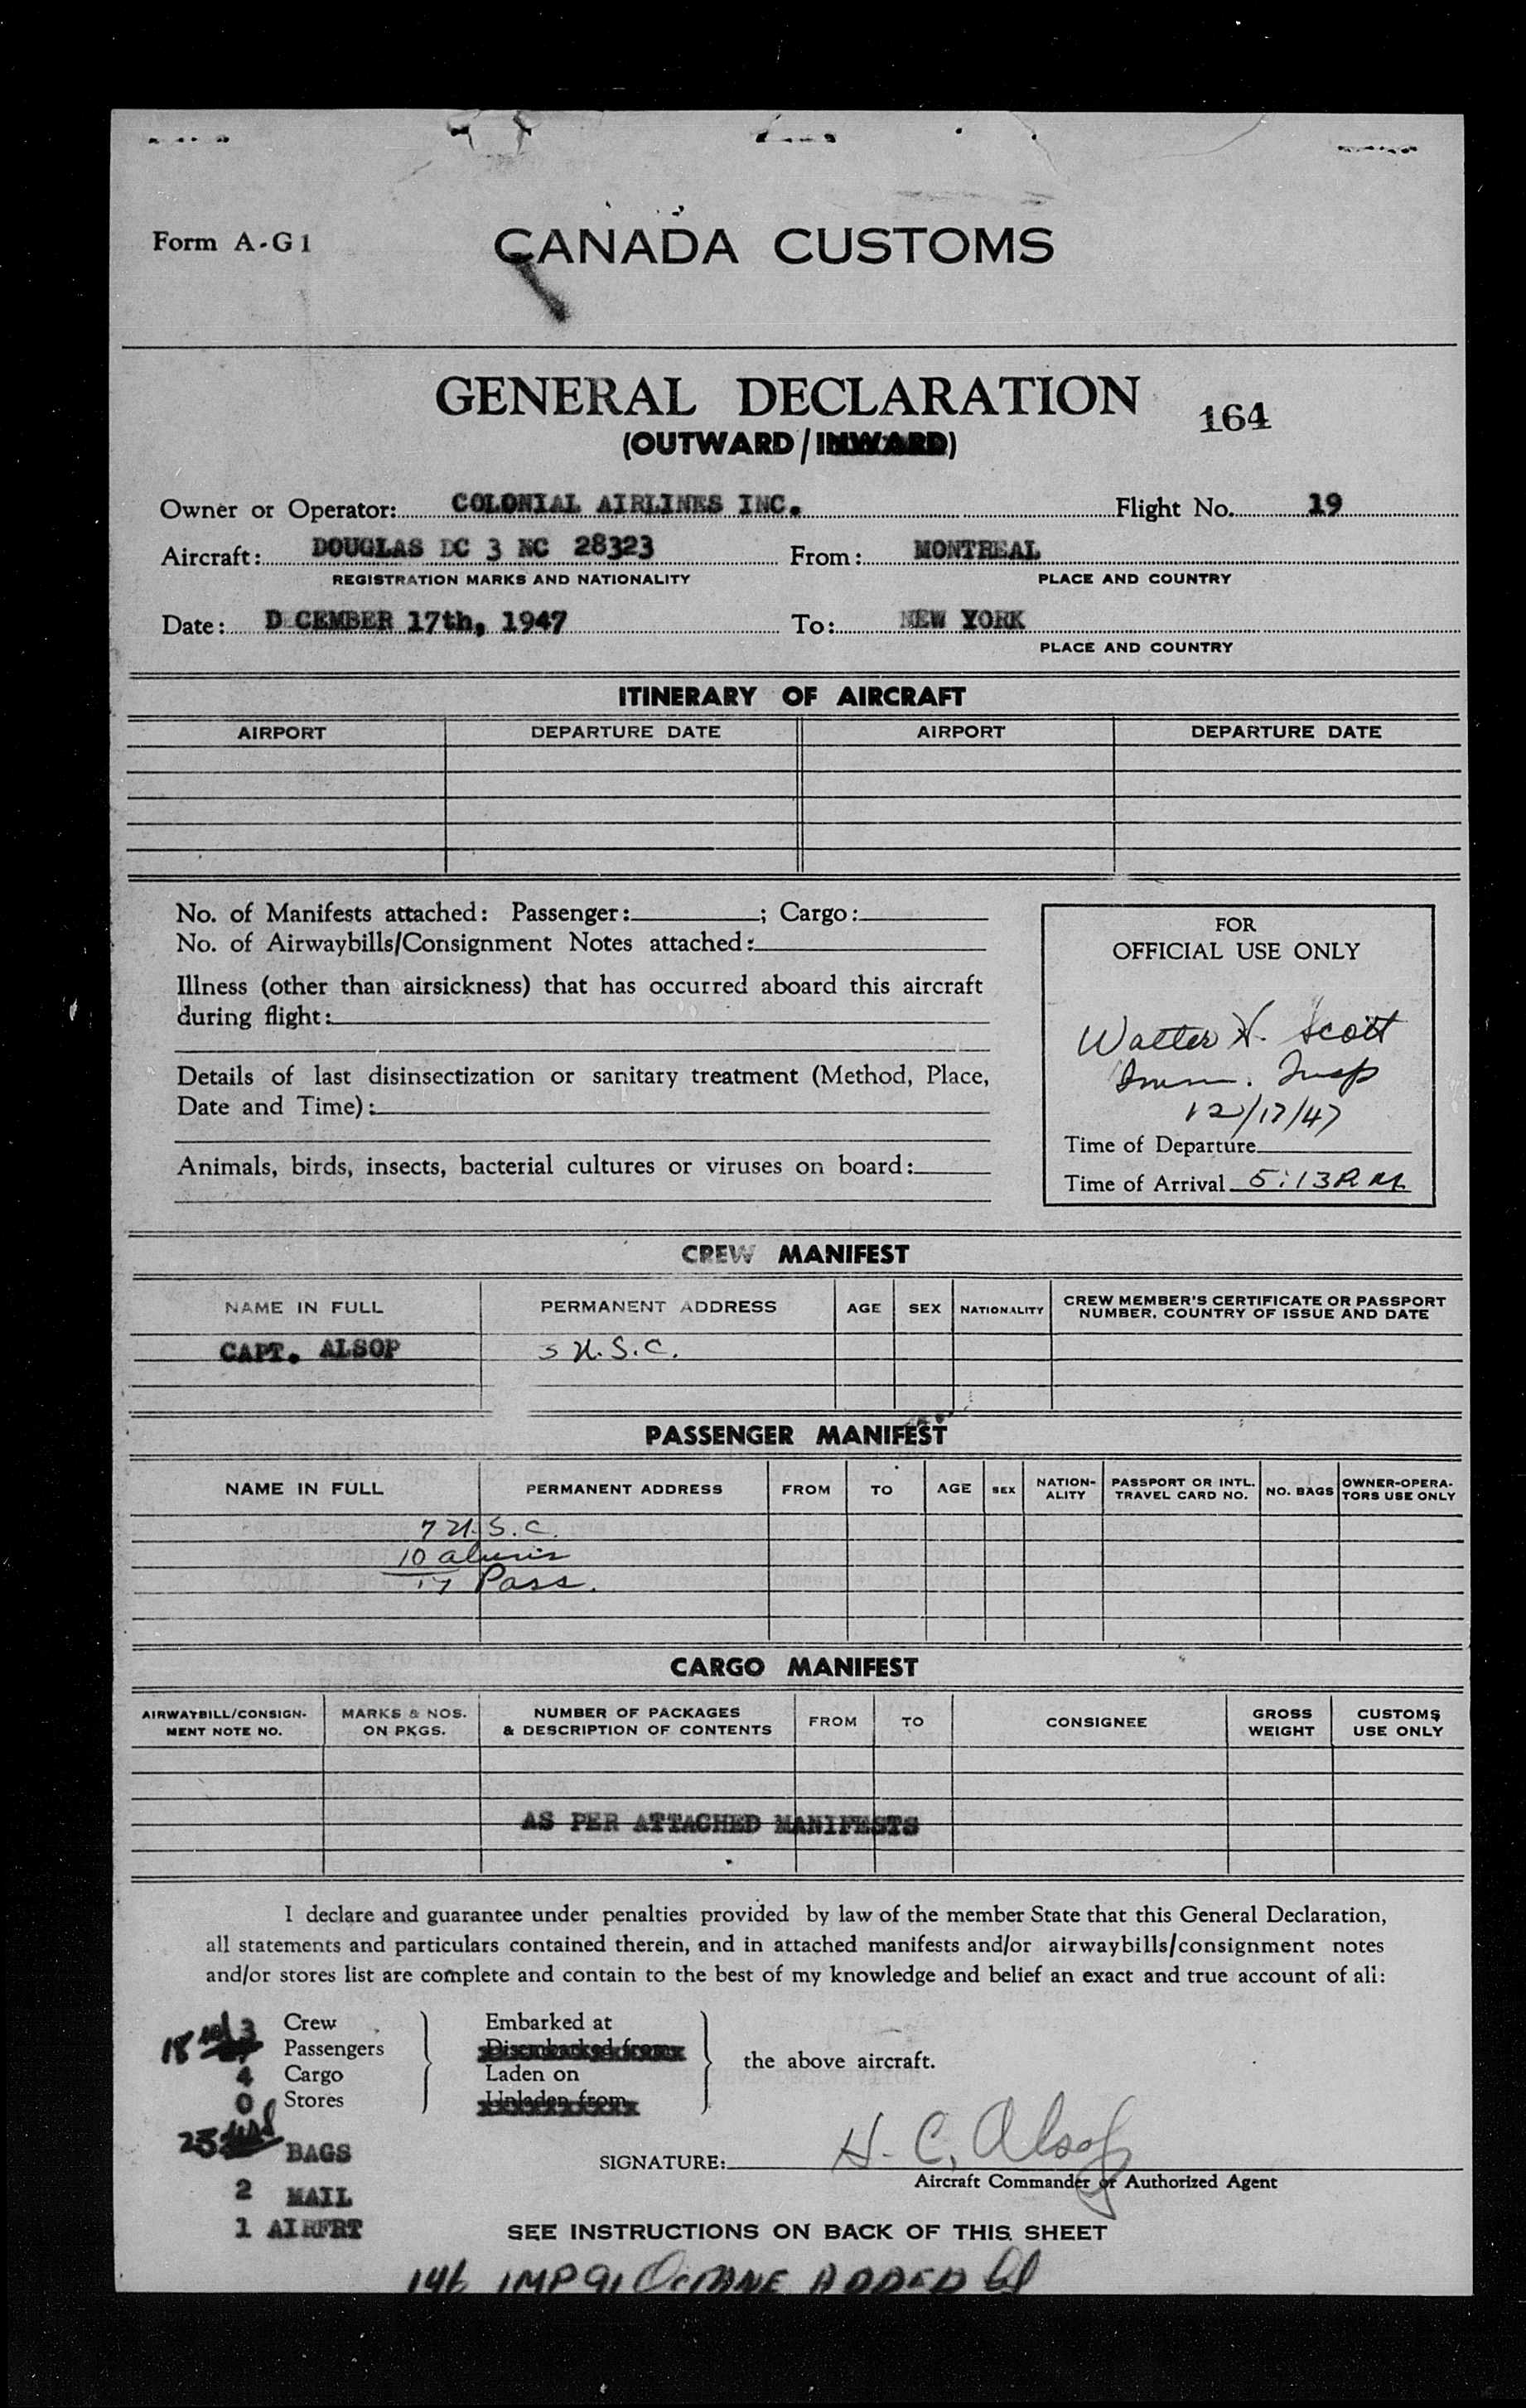 Form A-G1
CANADA CUSTOMS
GENERAL DECLARATION
164
(OUTWARD/INWARD)
Owner or Operator: COLONIAL AIRLINES INC. Flight No. 19
Aircraft: DOUGLAS DC 3 NC 28323 From: MONTREAL
REGISTRATION MARKS AND NATIONALITY PLACE AND COUNTRY
Date: D CEMBER 17th, 1947 To: NEW YORK
PLACE AND COUNTRY
ITINERARY OF AIRCRAFT
AIRPORT DEPARTURE DATE AIRPORT DEPARTURE DATE
No. of Manifests attached: Passenger: ; Cargo:
No. of Airwaybills/Consignment Notes attached:
Illness (other than airsickness) that has occurred aboard this aircraft
during flight:
Details of last disinsectization or sanitary treatment (Method, Place,
Date and Time):
Animals, birds, insects, bacterial cultures or viruses on board:
FOR
OFFICIAL USE ONLY
Walter H. Scott
Imm. Insp
12/17/47
Time of Departure
Time of Arrival 5:13 P M
CREW MANIFEST
NAME IN FULL PERMANENT ADDRESS AGE SEX NATIONALITY CREW MEMBER'S CERTIFICATE OR PASSPORT
NUMBER, COUNTRY OF ISSUE AND DATE
CAPT. ALSOP U.S.C.
PASSENGER MANIFEST
NAME IN FULL PERMANENT ADDRESS FROM TO AGE SEX NATION-
ALITY PASSPORT OR INTL.
TRAVEL CARD NO. NO. BAGS OWNER-OPERA-
TORS USE ONLY
7 U.S.C.
10 aliens
17 Pass.
CARGO MANIFEST
AIRWAYBILL/CONSIGN-
MENT NOTE NO. MARKS & NOS.
ON PKGS. NUMBER OF PACKAGES
& DESCRIPTION OF CONTENTS FROM TO CONSIGNEE GROSS
WEIGHT CUSTOMS
USE ONLY
AS PER ATTACHED MANIFESTS
I declare and guarantee under penalties provided by law of the member State that this General Declaration,
all statements and particulars contained therein, and in attached manifests and/or airwaybills/consignment notes
and/or stores list are complete and contain to the best of my knowledge and belief an exact and true account of all:
3 Crew
18 Passengers
4 Cargo
0 Stores
Embarked at
Disembarked from
Laden on
Unladen from
the above aircraft.
23 BAGS
2 MAIL
1 AIRFRT
SIGNATURE: H. C. Alsop
Aircraft Commander or Authorized Agent
SEE INSTRUCTIONS ON BACK OF THIS SHEET
146 IMP 91 OCTANE ADDED